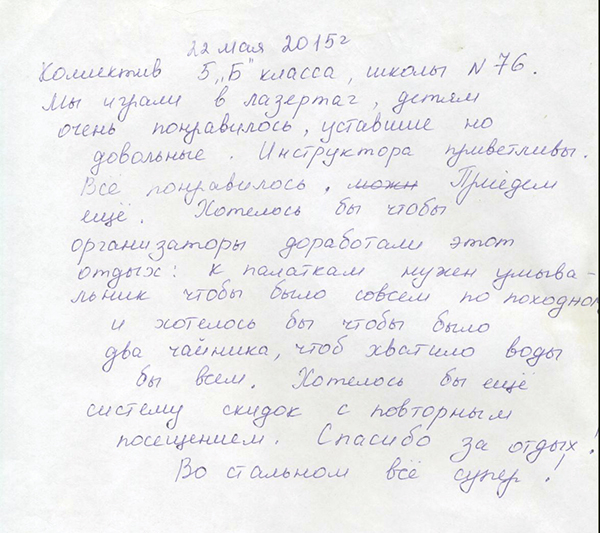 22 мая 2015г
Коллектив 5 „Б" класса, школы N 76.
Мы играли в лазертаг, детям
очень понравилось, уставшие но
довольные. Инструктора приветливы.
Всё понравилось, можн Приедем
ещё. Хотелось бы чтобы
организаторы доработали этот
отдых: к палаткам нужен умыва-
льник чтобы было совсем по походном
и хотелось бы чтобы было
два чайника, чтоб хватило воды
бы всем. Хотелось бы ещё
систему скидок с повторным
посещением. Спасибо за отдых!
Во стальном всё супер!